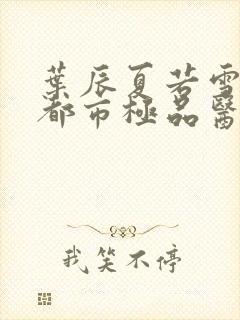 葉辰夏若雪
都市極品醫
我笑不停